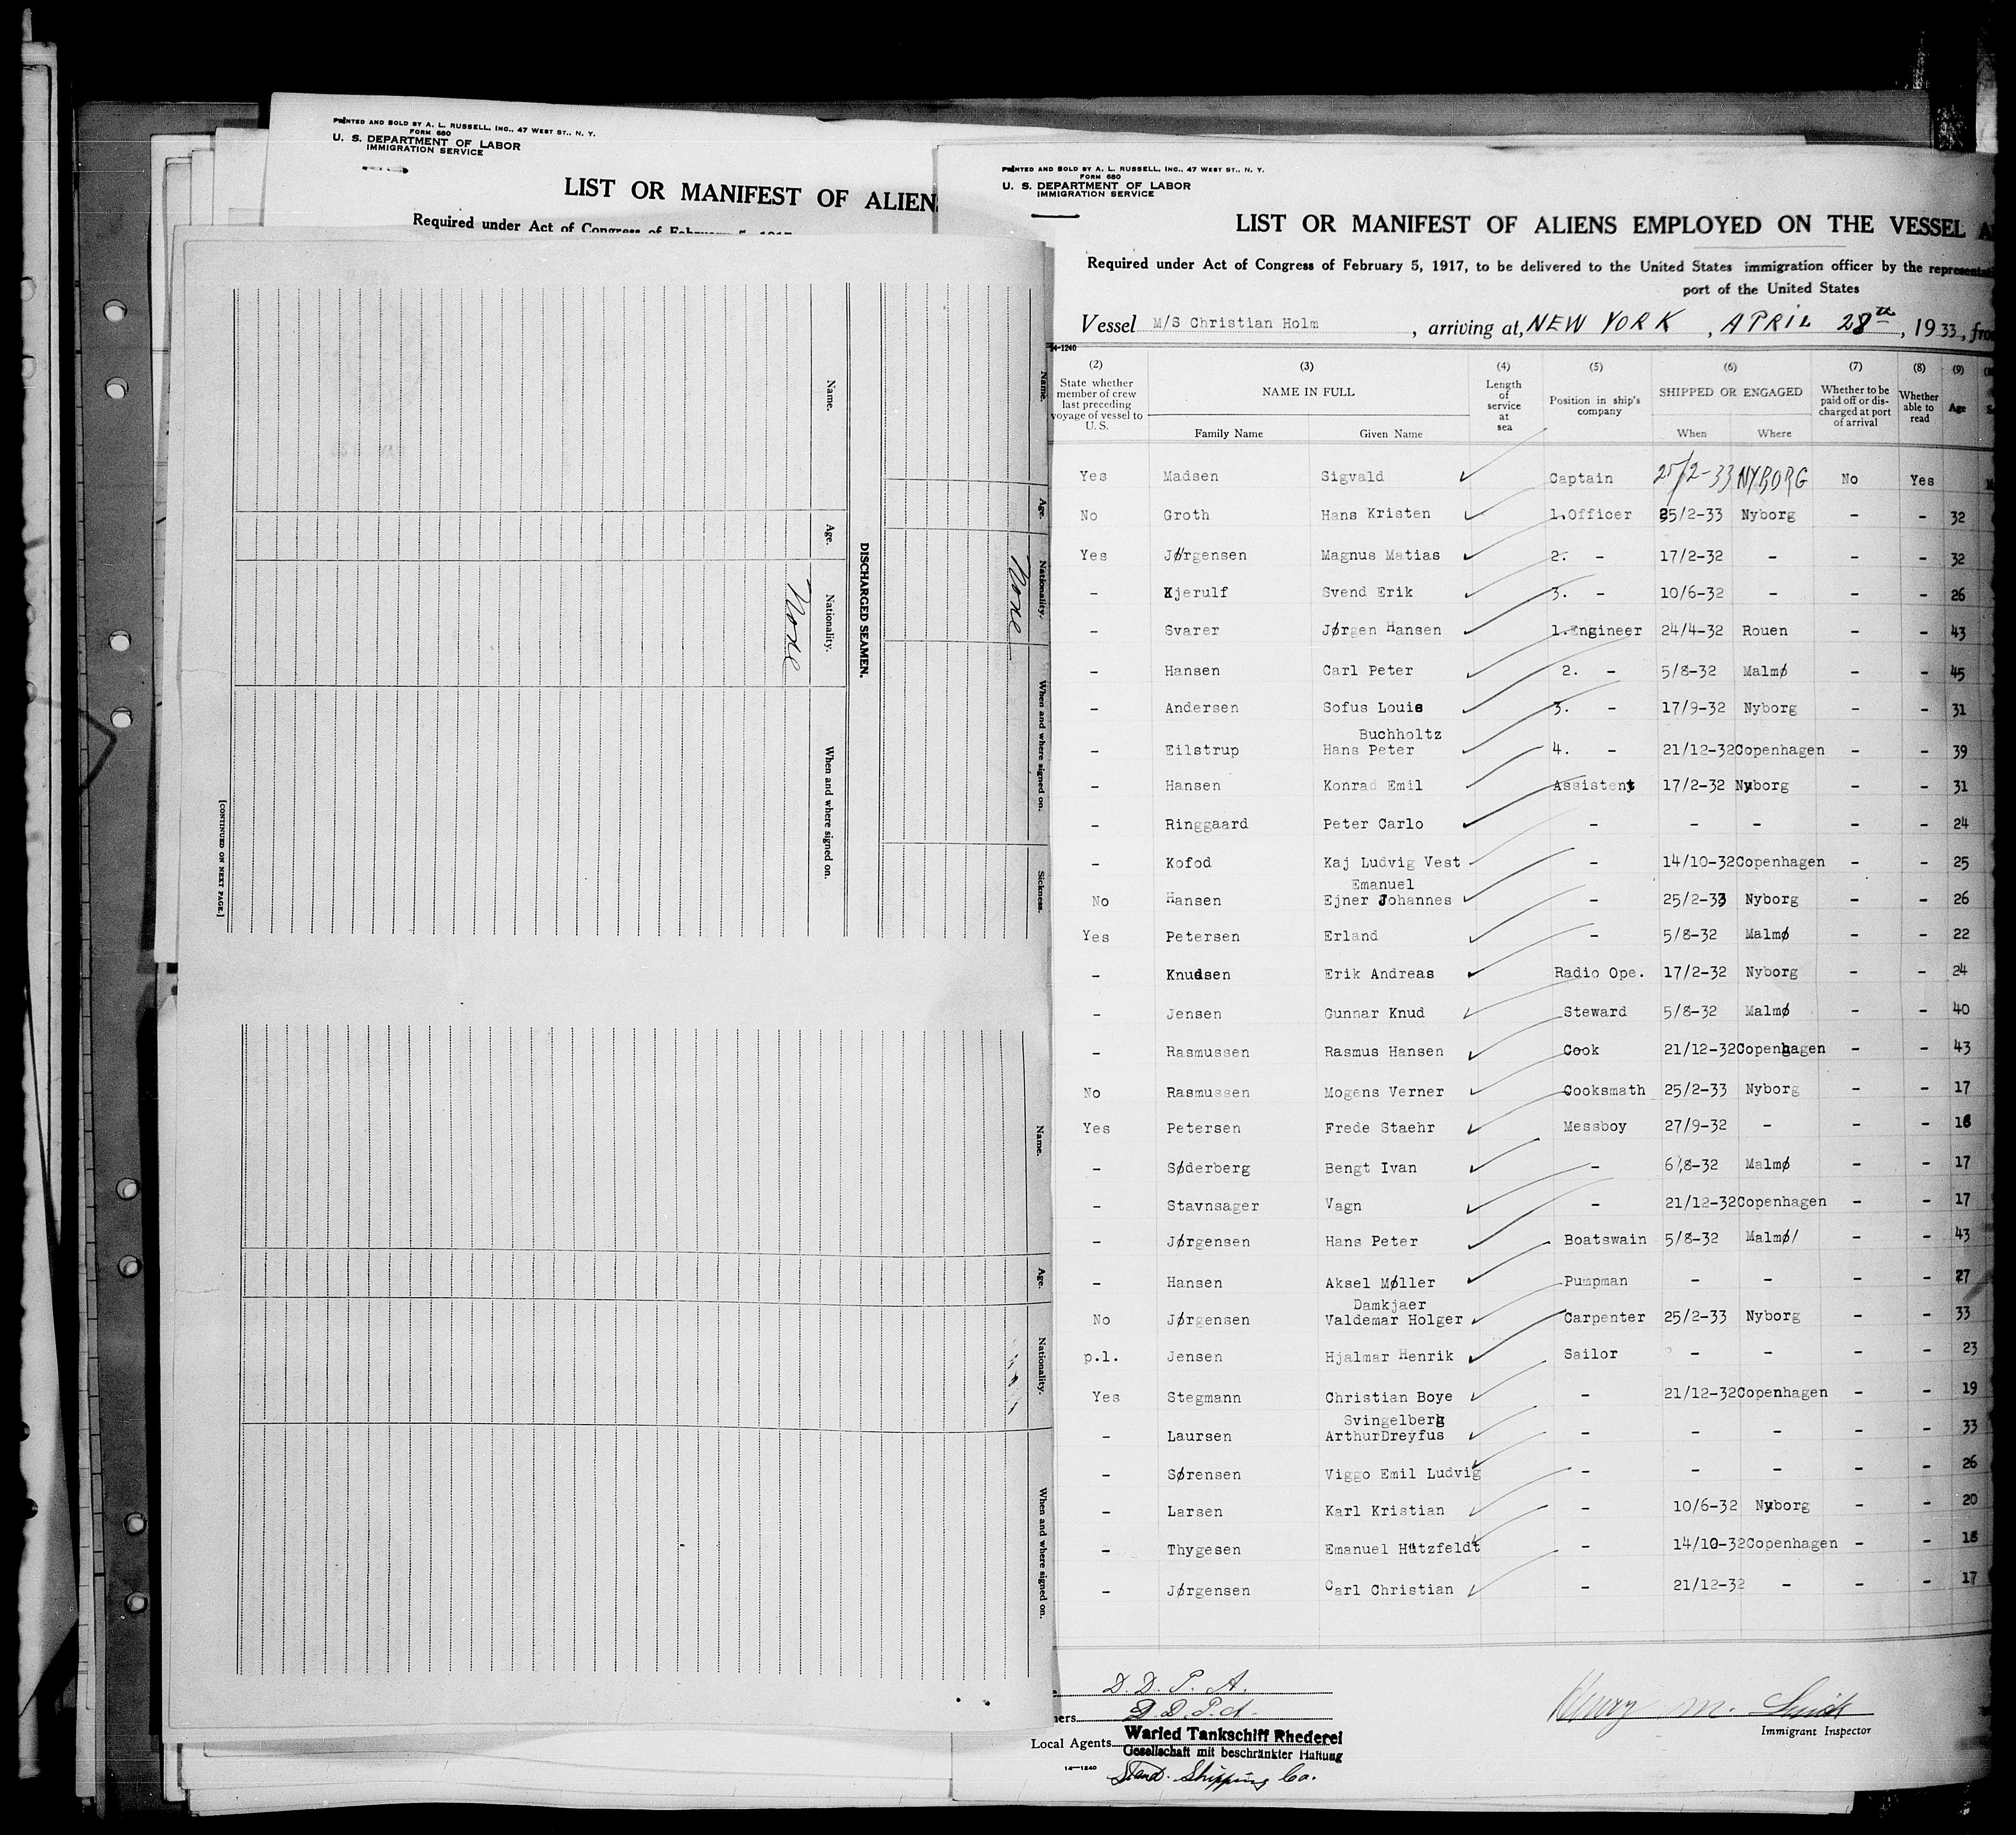 PRINTED AND SOLD BY A. L. RUSSELL, INC., 47 WEST ST., N. Y.
FORM 680
U. S. DEPARTMENT OF LABOR
IMMIGRATION SERVICE
LIST OR MANIFEST OF ALIEN
Required under Act of Congress of February 5, 1917
Name. Age. Nationality. When and where signed on. Sickness.
None
DISCHARGED SEAMEN.
Name. Age. Nationality. When and where signed on.
None
[CONTINUED ON NEXT PAGE.]
Name. Age. Nationality. When and where signed on.
PRINTED AND SOLD BY A. L. RUSSELL, INC., 47 WEST ST., N. Y.
FORM 680
U. S. DEPARTMENT OF LABOR
IMMIGRATION SERVICE
LIST OR MANIFEST OF ALIENS EMPLOYED ON THE VESSEL A
Required under Act of Congress of February 5, 1917, to be delivered to the United States immigration officer by the representati
port of the United States
Vessel M/S Christian Holm, arriving at, NEW YORK, APRIL 28th, 1933, fro
14-1240
(2) (3) (4) (5) (6) (7) (8) (9)
State whether member of crew last preceding voyage of vessel to U. S. NAME IN FULL Length of service at sea Position in ship's company SHIPPED OR ENGAGED Whether to be paid off or discharged at port of arrival Whether able to read Age
Family Name Given Name When Where
Yes Madsen Sigvald Captain 25/2-33 NYBORG No Yes
No Groth Hans Kristen 1.Officer 25/2-33 Nyborg - - 32
Yes Jørgensen Magnus Matias 2. - 17/2-32 - - - 32
- Kjerulf Svend Erik 3. - 10/6-32 - - - 26
- Svarer Jørgen Hansen 1.Engineer 24/4-32 Rouen - - 43
- Hansen Carl Peter 2. - 5/8-32 Malmø - - 45
- Andersen Sofus Louis 3. - 17/9-32 Nyborg - - 31
Buchholtz
- Eilstrup Hans Peter 4. - 21/12-32 Copenhagen - - 39
- Hansen Konrad Emil Assistent 17/2-32 Nyborg - - 31
- Ringgaard Peter Carlo - - - - - 24
- Kofod Kaj Ludvig Vest - 14/10-32 Copenhagen - - 25
Emanuel
No Hansen Ejner Johannes - 25/2-33 Nyborg - - 26
Yes Petersen Erland - 5/8-32 Malmø - - 22
- Knudsen Erik Andreas Radio Ope. 17/2-32 Nyborg - - 24
- Jensen Gunnar Knud Steward 5/8-32 Malmø - - 40
- Rasmussen Rasmus Hansen Cook 21/12-32 Copenhagen - - 43
No Rasmussen Mogens Verner Cooksmath 25/2-33 Nyborg - - 17
Yes Petersen Frede Staehr Messboy 27/9-32 - - - 16
- Søderberg Bengt Ivan - 6/8-32 Malmø - - 17
- Stavnsager Vagn - 21/12-32 Copenhagen - - 17
- Jørgensen Hans Peter Boatswain 5/8-32 Malmø/ - - 43
- Hansen Aksel Møller Pumpman - - - - 27
Damkjaer
No Jørgensen Valdemar Holger Carpenter 25/2-33 Nyborg - - 33
p.l. Jensen Hjalmar Henrik Sailor - - - - 23
Yes Stegmann Christian Boye - 21/12-32 Copenhagen - - 19
Svingelberg
- Laursen ArthurDreyfus - - - - - 33
- Sørensen Viggo Emil Ludvig - - - - - 26
- Larsen Karl Kristian - 10/6-32 Nyborg - - 20
- Thygesen Emanuel Hatzfeldt - 14/10-32 Copenhagen - - 18
- Jørgensen Carl Christian - 21/12-32 - - - 17
D. D. P. A.
ners D. D. P. A.
Local Agents Waried Tankschiff Rhederei
Gesellschaft mit beschränkter Haftung
14-1240
Stand. Shipping Co.
Henry M.
Immigrant Inspector